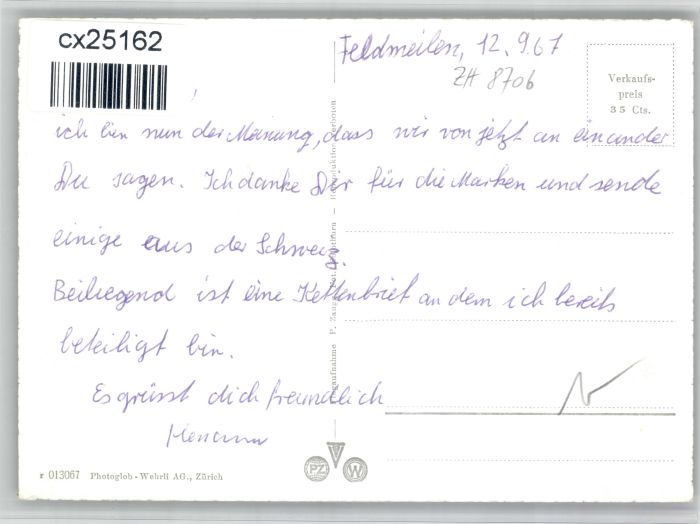 cx25162
Feldmeilen, 12. 9.67
ZH 8706
Verkaufs-
preis
35 Cts.
ich bin nun der Meinung, dass wir von jetzt an einander
Du sagen. Ich danke Dir für die Marken und sende
einige aus der Schweiz.
Beiliegend ist eine Kettenbrief an dem ich bereits
beteiligt bin.
Es grüsst dich freundlich
r 013067 Photoglob-Wehrli AG., Zürich
PZ W